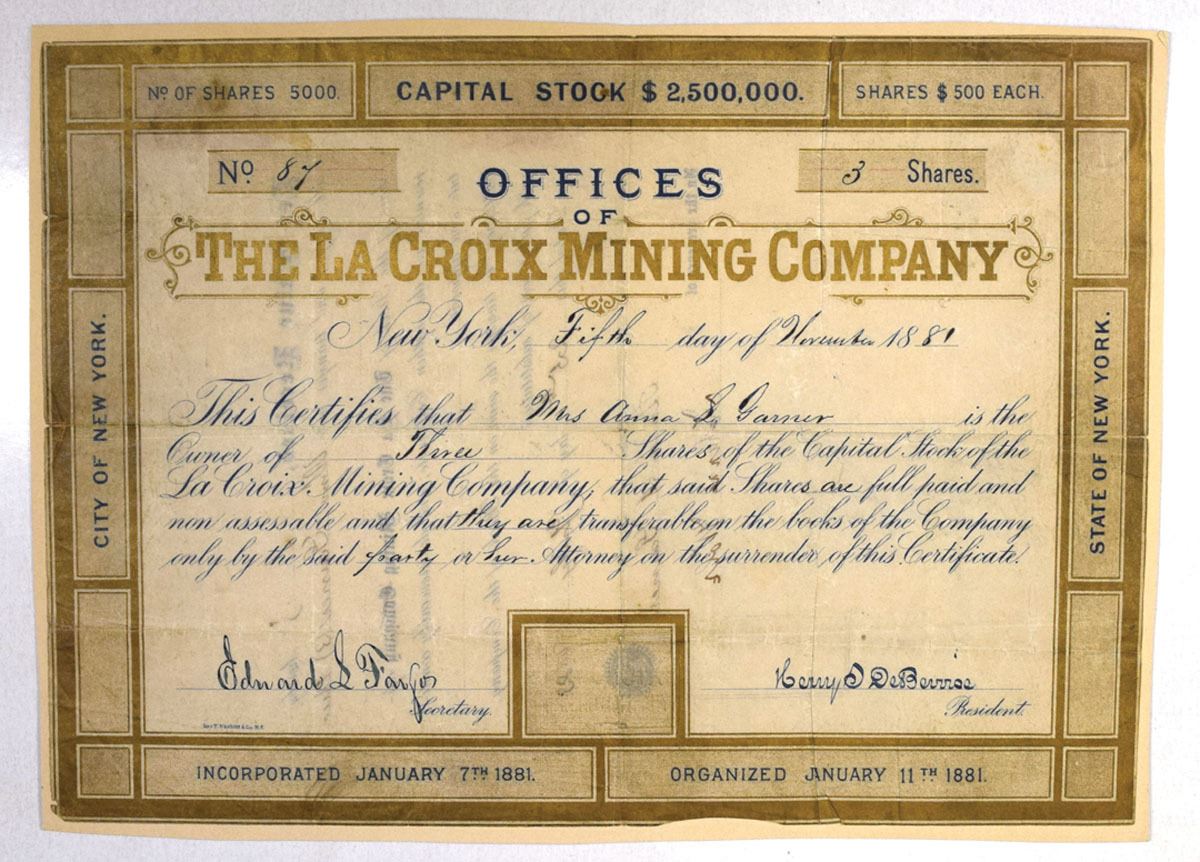 No OF SHARES 5000.
CAPITAL STOCK $ 2,500,000.
SHARES $ 500 EACH.
No 87
3 Shares.
OFFICES
OF
THE LA CROIX MINING COMPANY
New York, Fifth day of November 1881
CITY OF NEW YORK.
STATE OF NEW YORK.
This Certifies that Mrs Anna S Garner is the
Owner of Three Shares of the Capital Stock of the
La Croix Mining Company, that said Shares are full paid and
non assessable and that they are transferable on the books of the Company
only by the said party or her Attorney on the surrender of this Certificate.
Edward L Fargo
Secretary.
Henry D DeBevoise
President.
INCORPORATED JANUARY 7TH 1881.
ORGANIZED JANUARY 11TH 1881.